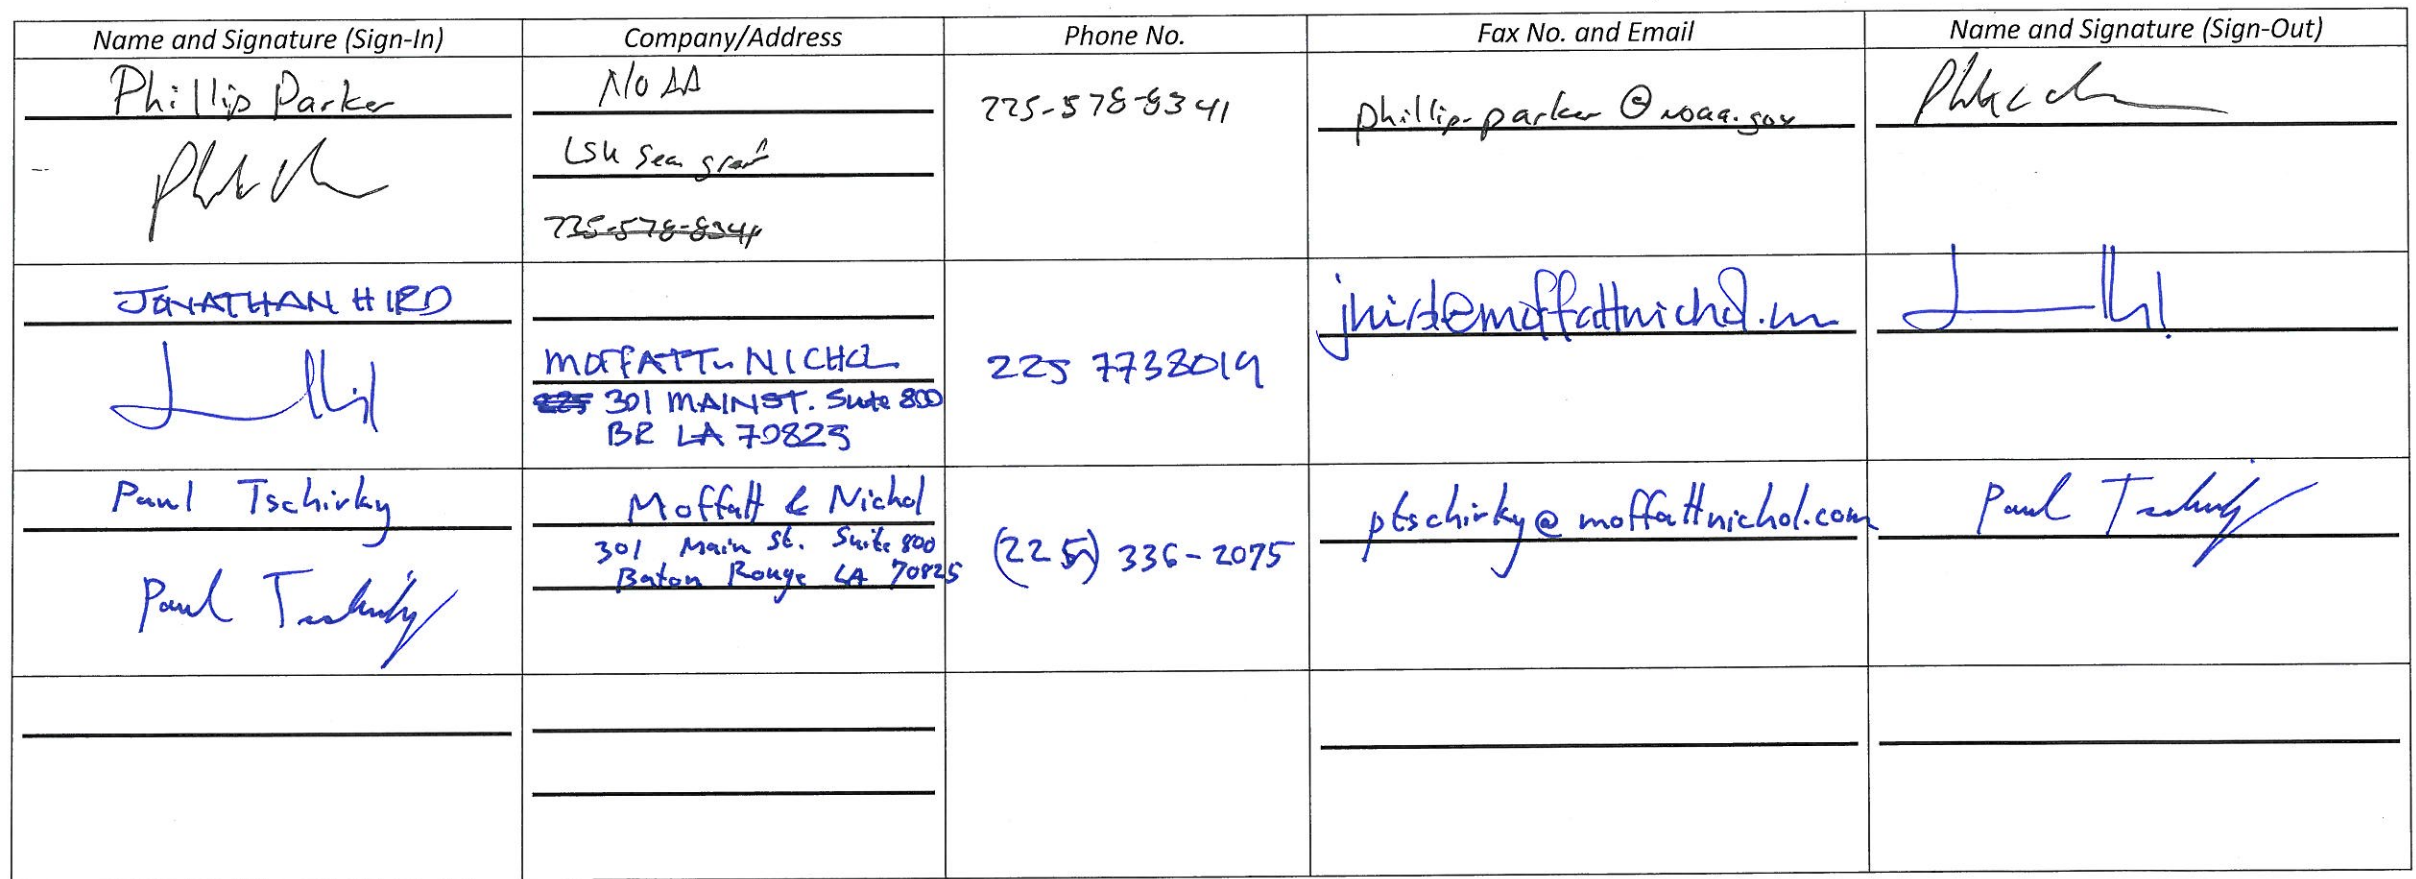 Name and Signature (Sign-In) Company/Address Phone No. Fax No. and Email Name and Signature (Sign-Out)
Phillip Parker
NOAA
LSU Sea grant
225-578-8341
225-578-8341
phillip.parker@noaa.gov
JONATHAN HIRD
MOFFATT NICHOL
301 MAIN ST. Suite 800
BR LA 70825
225 7738019
Paul Tschirky
Paul Tschirky
Moffatt & Nichol
301 Main St. Suite 800
Baton Rouge LA 70825
(225) 336-2075
ptschirky@moffattnichol.com
Paul Tschirky